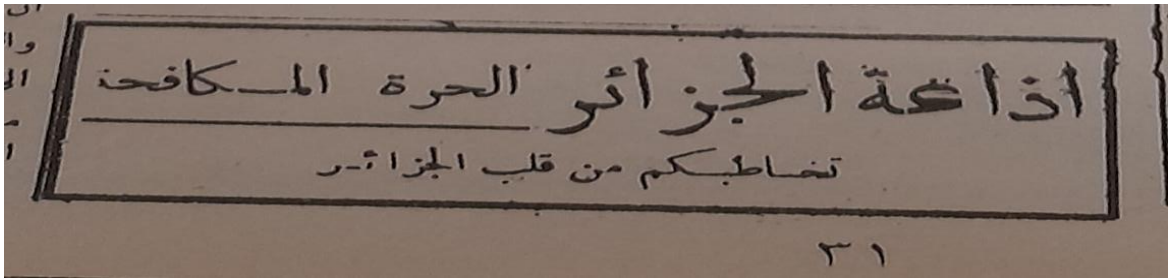 اذاعة الجزائر الحرة المكافحة
تخاطبكم من قلب الجزائر
٣١